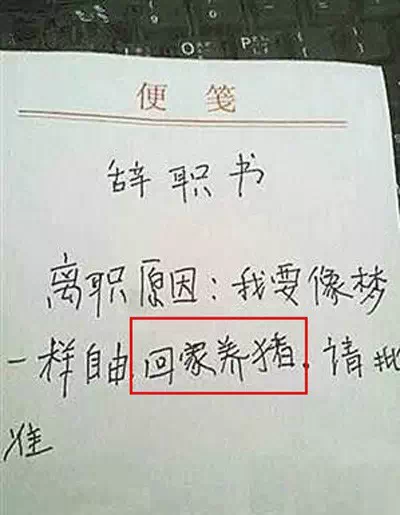 O
P
便笺
辞职书
离职原因:我要像梦
一样自由.回家养猪.请批
准